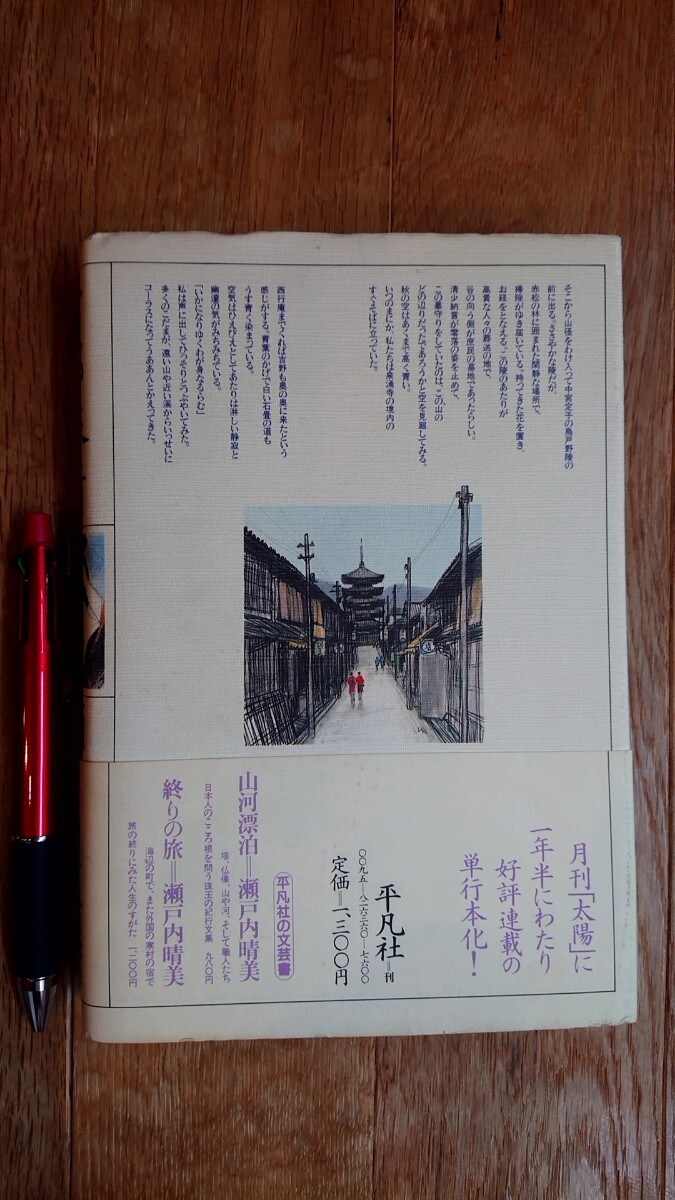 そこから山径をわけ入って中宮定子の鳥戸野陵の
前に出る。ささやかな陵だが、
赤松の林に囲まれた閑静な場所で、
掃除がゆき届いている。持ってきた花を置き、
お経をとなえる。この陵のあたりが
高貴な人々の葬送の地で、
谷の向う側が庶民の墓地であったらしい。
清少納言が零落の姿を止めて、
この墓守りをしていたのは、この山の
どの辺りだったであろうかと空を見廻してみる。
秋の空はあくまで高く青い。
いつのまにか、私たちは泉涌寺の境内の
すぐそばに立っていた。
西行庵までくれば吉野も奥の奥に来たという
感じがする。青葉のかげで白い石畳の道も
うす青く染まっている。
空気はひえびえとしてあたりは淋しい静寂と
幽邃の気がみちみちている。
「いかになりゆくわが身なるらむ」
私は声に出してひっそりとつぶやいてみた。
多くのこだまが、遠い山や近い渓からいっせいに
コーラスになってうああんとかえってきた。
月刊「太陽」に
一年半にわたり
好評連載の
単行本化！
平凡社＝刊
定価＝一、三〇〇円
〇〇九五―八二六三六〇―七六〇〇
平凡社の文芸書
山河漂泊＝瀬戸内晴美
塔、仏像、山や河、そして職人たち
日本人のこころ根を問う珠玉の紀行文集 九八〇円
終りの旅＝瀬戸内晴美
海辺の町で、また外国の寒村の宿で
旅の終りにみた人生のすがた 一、二〇〇円